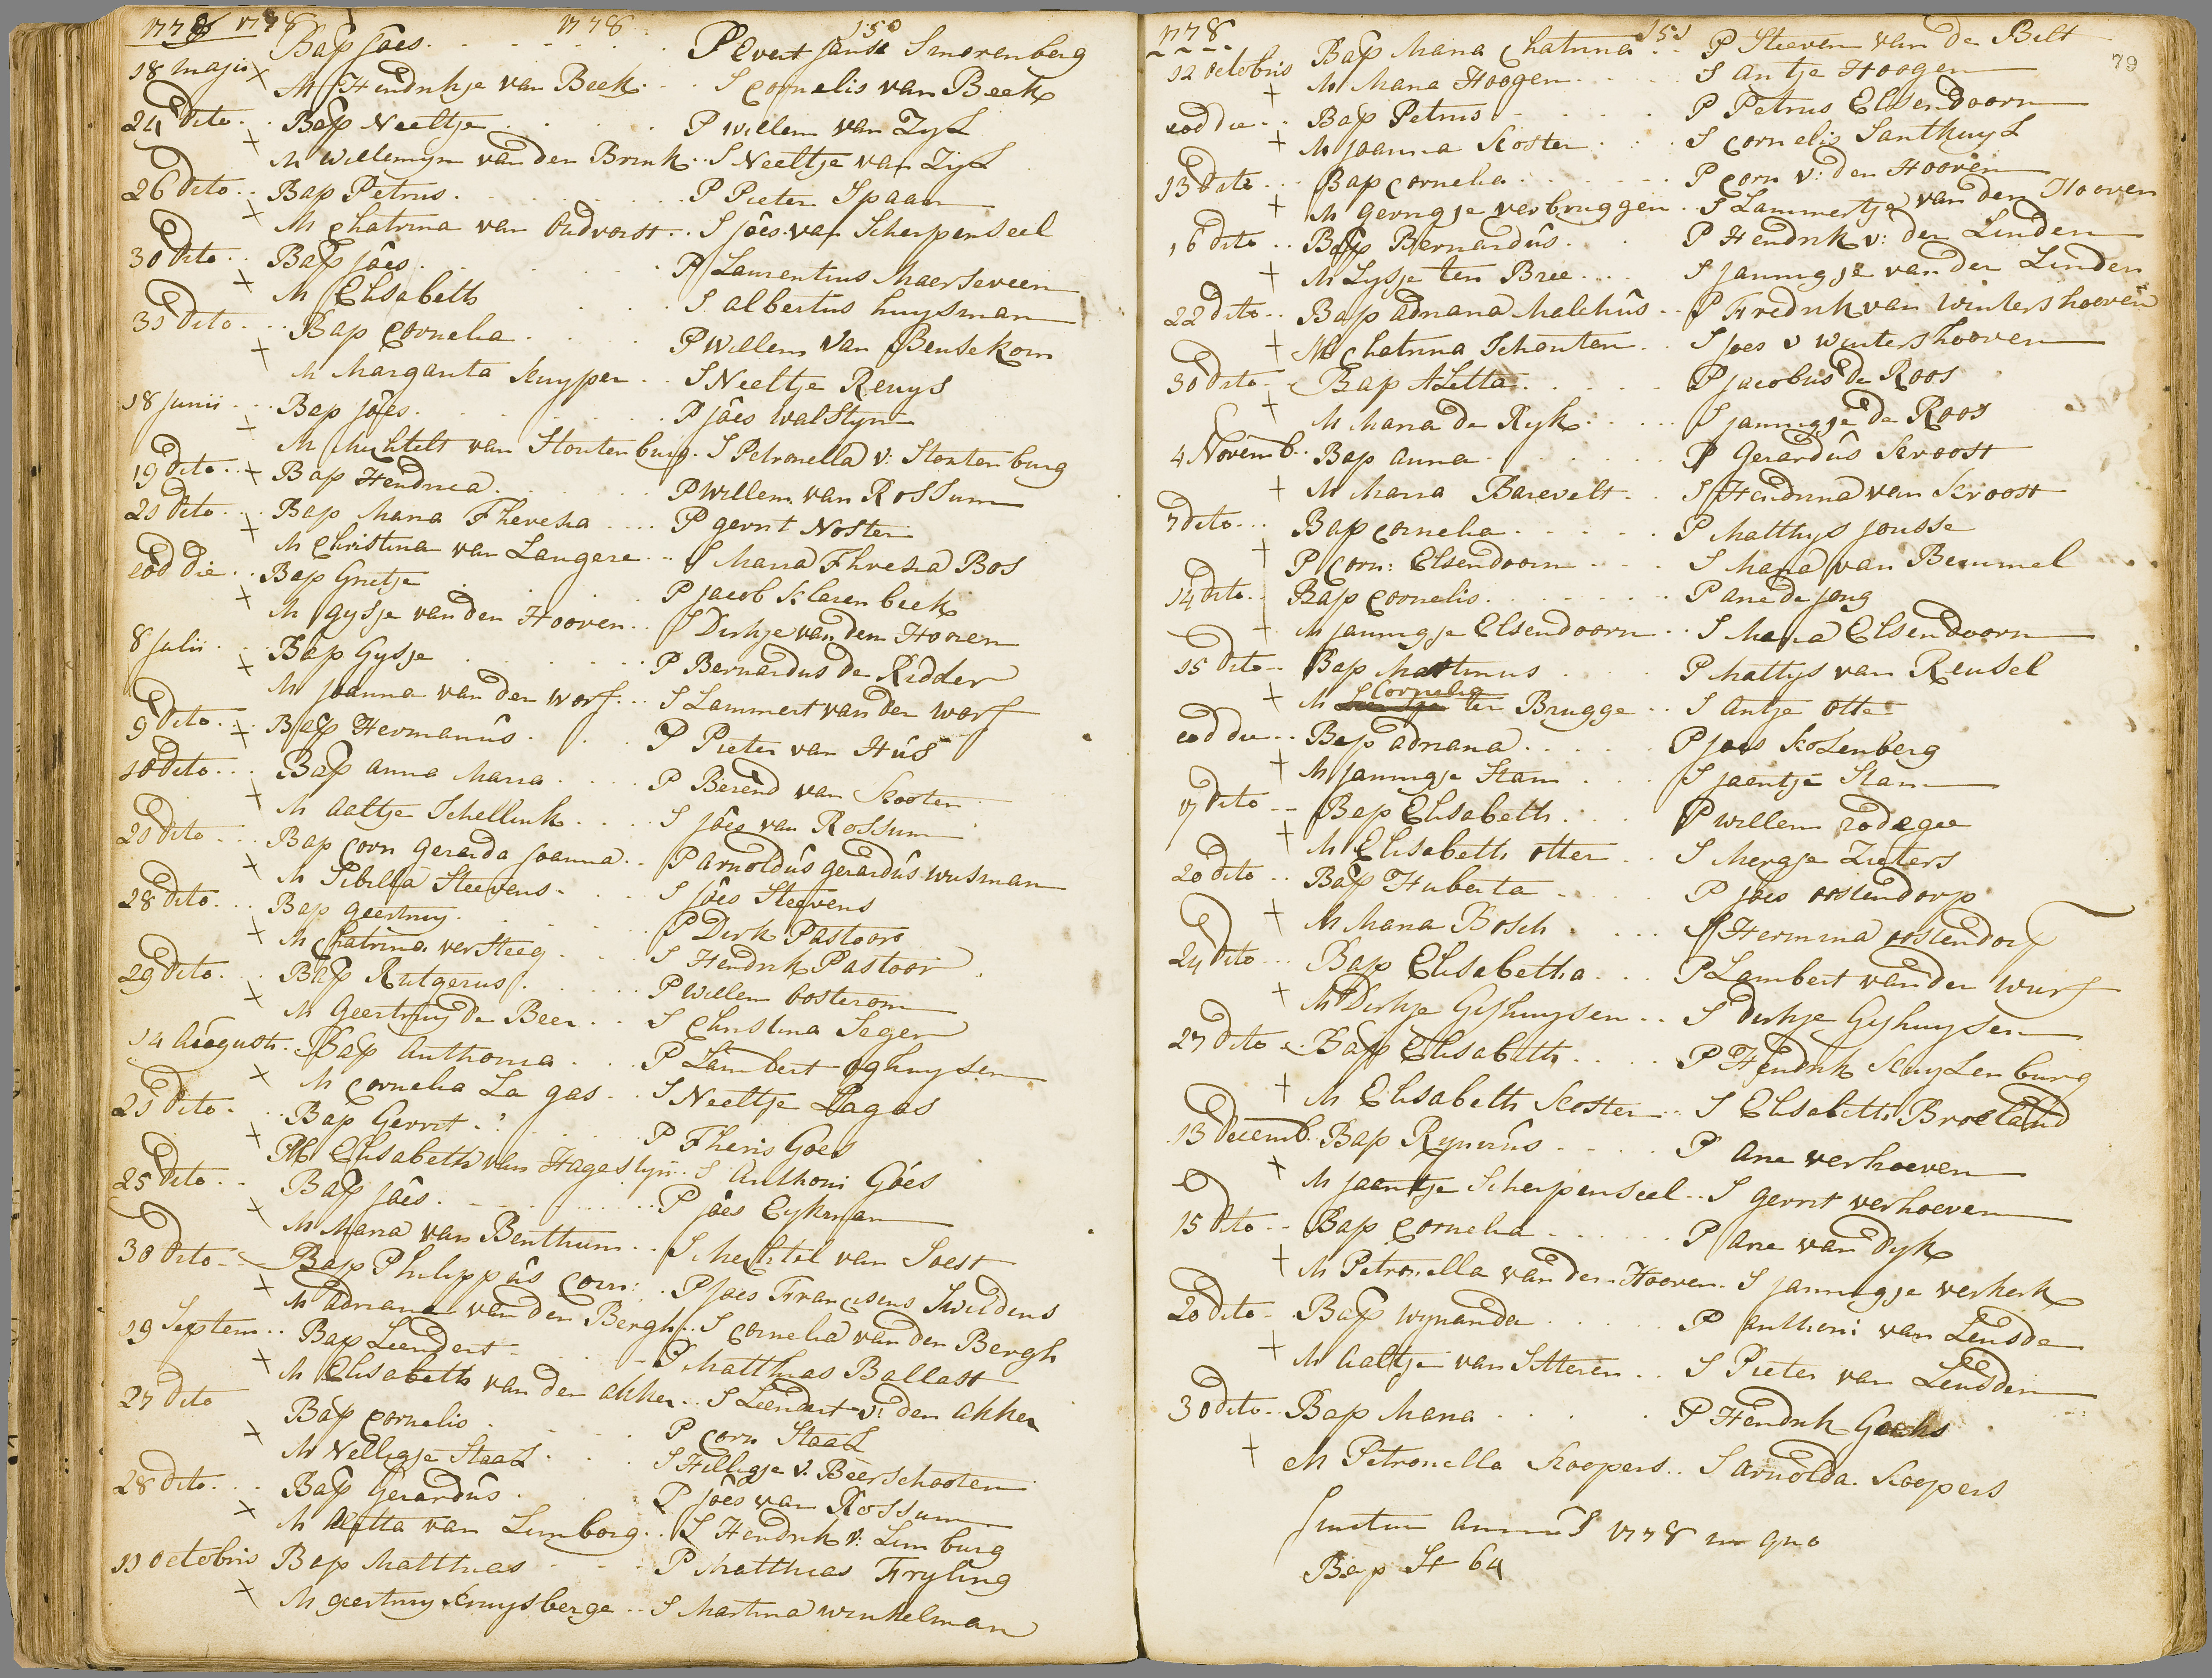 1778 1778 1778 150
Bap Jôes. P Evert Janse Smorenberg
18 Maji + M Hendrikje van Beek. S Cornelis van Beek
24 dito. Bap Neeltje P Willem van Zyl
+ M Willemyn van den Brink. S Neeltje van Zyl
26 dito. Bap Petrus. P Pieter Spaan
+ M Chatrina van Oudvorst. S Jôes van Scherpenseel
30 dito. Bap Jôes. P Laurentius Maerseveen
+ M Elisabeth S Albertus Huysman
31 dito. Bap Cornelia P Willem van Beusekom
+ M Margarita Kuyper S Neeltje Reuys
18 Junii Bap Jôes. P Jôes Walstyn
+ M Mechtelt van Stoutenburg. S Petronella v: Stoutenburg
19 dito. + Bap Hendrica. P Willem van Rossum
21 dito. Bap Maria Theresia P Gerrit Noster
+ M Christina van Langere S Maria Thresia Bos
eod die. Bap Grietje P Jacob Klerenbeek
+ M Gysje van den Hooven. S Dirkje van den Hoven
8 Julii Bap Gysje P Bernardus de Ridder
+ M Joanna van der Worf. S Lammert van der Worf
9 dito. + Bap Hermanûs. P Pieter van Hus
10 dito. Bap Anna Maria P Berend van Kooten
+ M Aaltje Schellink. S Jôes van Rossum
21 dito. Bap Corn Gerarda Joanna. P Arnoldûs Gerardûs Wusman
+ M Sibilla Steevens S Jôes Steevens
28 dito. Bap Geertruy. P Dirk Pastoor
+ M Chatrina Versteeg. S Hendrik Pastoor
29 dito. Bap Rutgerus. P Willem Oosterom
+ M Geertruy de Beer. S Christina Seger
14 Augusti. Bap Anthonia P Lambert Oghuysen
+ M Cornelia La gas. S Neeltje Lagas
21 dito. Bap Gerrit. P Theris Goes
+ M Elisabeth van Hagesteyn. S Anthoni Góes
25 dito. Bap Jôes. P Jôes Eykman
+ M Maria van Benthum. S Mechtel van Soest
30 dito. Bap Philippûs Corn: P Joes Franciscus Swildens
+ M Adriana van den Bergh. S Cornelia van den Bergh
19 Septem. Bap Leendert P Matthias Ballast
+ M Elisabeth van den Akker. S Leendert v: den Akker
27 dito Bap Cornelis P Corn Staal
+ M Nelligje Staal. S Hilligje v. Beerschooten
28 dito. Bap Gerardûs. P Jôes van Rossum
+ M Aletta van Limborg. S Hendrik v: Limburg
11 Octobris Bap Matthias P Matthias Fryling
+ M Geertruy Kruysberge S Martina Winkelman
1778. 151 79
12 Octobris Bap Maria Chatrina P Steeven van de Belt
+ M Maria Hoogen S Antje Hoogen
eod die Bap Petrus P Petrus Elsendoorn
+ M Joanna Koster S Cornelis Santhuyl
13 dito Bap Cornelia P Corn v: den Hooven
+ M Gerrigje Verbruggen. S Lammertje van den Hooven
16 dito Bap Bernardûs. P Hendrik v: der Linden
+ M Lysje ten Bree S Jannigje van der Linden
22 dito Bap Adriana Malchûs P Fredrik van Wintershoeven
+ M Chatrina Schouten S Joes v Wintershooven
30 dito Bap Aletta P Jacobus de Roos
+ M Maria de Ryk. S Jannigje de Roos
4 Novemb. Bap Anna P Gerardûs Kroost
+ M Maria Barevelt S Hendrina van Kroost
7 dito Bap Cornelia P Matthys Jousse
+ P Corn: Elsendoorn S Maria van Bemmel
14 dito Bap Cornelis. P Arie de Jong
+ M Jannigje Elsendoorn S Maria Elsendoorn
15 dito Bap Martinus P Mattys van Reusel
Cornelia
+ M ter Brugge S Antje Otte
eod die Bap Adriana P Joes Kolenberg
+ M Jannigje Stam S Jaentje Stam
17 dito Bap Elisabeth. P Willem Rodegee
+ M Elisabeth Otter S Mergje Zieters
20 dito Bap Huberta P Jôes Oostendorp
+ M Maria Bosch S Hermina Oostendorp
24 dito Bap Elisabetha P Lambert van der Wurf
+ M Dirkje Gyshuysen S Dirkje Gyshuysen
27 dito Bap Elisabeth P Hendrik Kuylenburg
+ M Elisabeth Koster S Elisabeth Broeland
13 Decemb. Bap Rynerûs P Arie Verhoeven
+ M Jaantje Scherpenseel S Gerrit Verhoeven
15 dito Bap Cornelia P Arie van Dyk
+ M Petronella van den Hooven. S Jannigje Verkerk
20 dito Bap Wynanda P Anthoni van Leusde
+ M Aaltje van Sitteren S Pieter van Leusden
30 dito Bap Maria P Hendrik Goeks
+ M Petronella Koopers S Arnolda Koopers
finitus annus 1778 in quo
Bap St 64